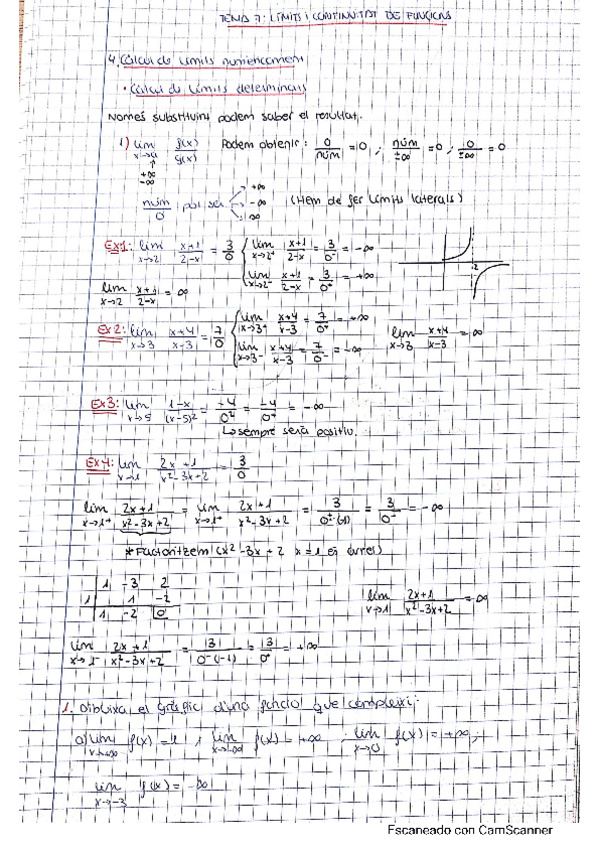 TEMA 7: LÍMITS I CONTINUITAT DE FUNCIONS
4. Càlcul de límits numèricament
· Càlcul de límits determinats
Només substituint podem saber el resultat.
1) lim x→a f(x)/g(x) Podem obtenir: 0/núm = 0 ; núm/±∞ = 0 ; 0/±∞ = 0
+∞
-∞
núm/0 pot ser +∞ -∞ ∞ (Hem de fer límits laterals)
Ex1: lim x→2 x+1/2-x = 3/0 { lim x→2+ x+1/2-x = 3/0- = -∞
lim x→2- x+1/2-x = 3/0+ = +∞
2
lim x→2 x+1/2-x = ∞
Ex2: lim x→3 x+4/x-3 = 7/0 { lim x→3+ x+4/x-3 = 7/0+ = +∞
lim x→3- x+4/x-3 = 7/0- = -∞
lim x→3 x+4/x-3 = ∞
Ex3: lim x→5 1-x/(x-5)² = -4/0² = -4/0+ = -∞
↳ sempre serà positiu.
Ex4: lim x→1 2x+1/x²-3x+2 = 3/0
lim x→1+ 2x+1/x²-3x+2 = lim x→1+ 2x+1/x²-3x+2 = 3/0+·(-1) = 3/0- = -∞
*Factoritzem (x²-3x+2 x=1 és arrel)
1 -3 2
1 1 -2
1 -2 0
lim x→1 2x+1/x²-3x+2 = ∞
lim x→1- 2x+1/x²-3x+2 = 3/0-(-1) = 3/0+ = +∞
1. Dibuixa el gràfic d'una funció que compleixi:
a) lim f(x) = 1 ; lim f(x) = +∞ ; lim x→0 f(x) = +∞ ;
lim x→-3 f(x) = -∞
Escaneado con CamScanner